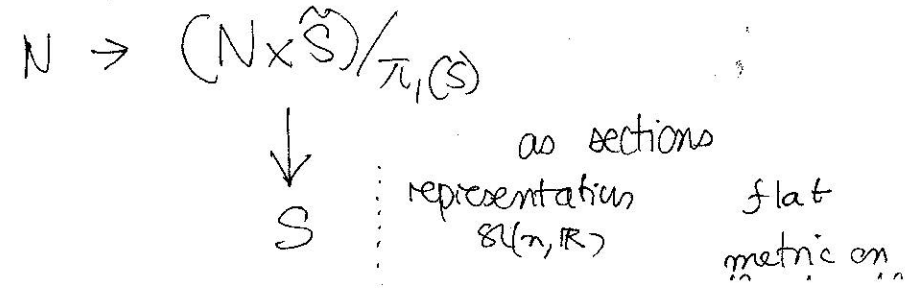 N → (N × S̃)/π₁(S)
↓
as sections
S
representation
flat
Sl(n, ℝ)
metric on